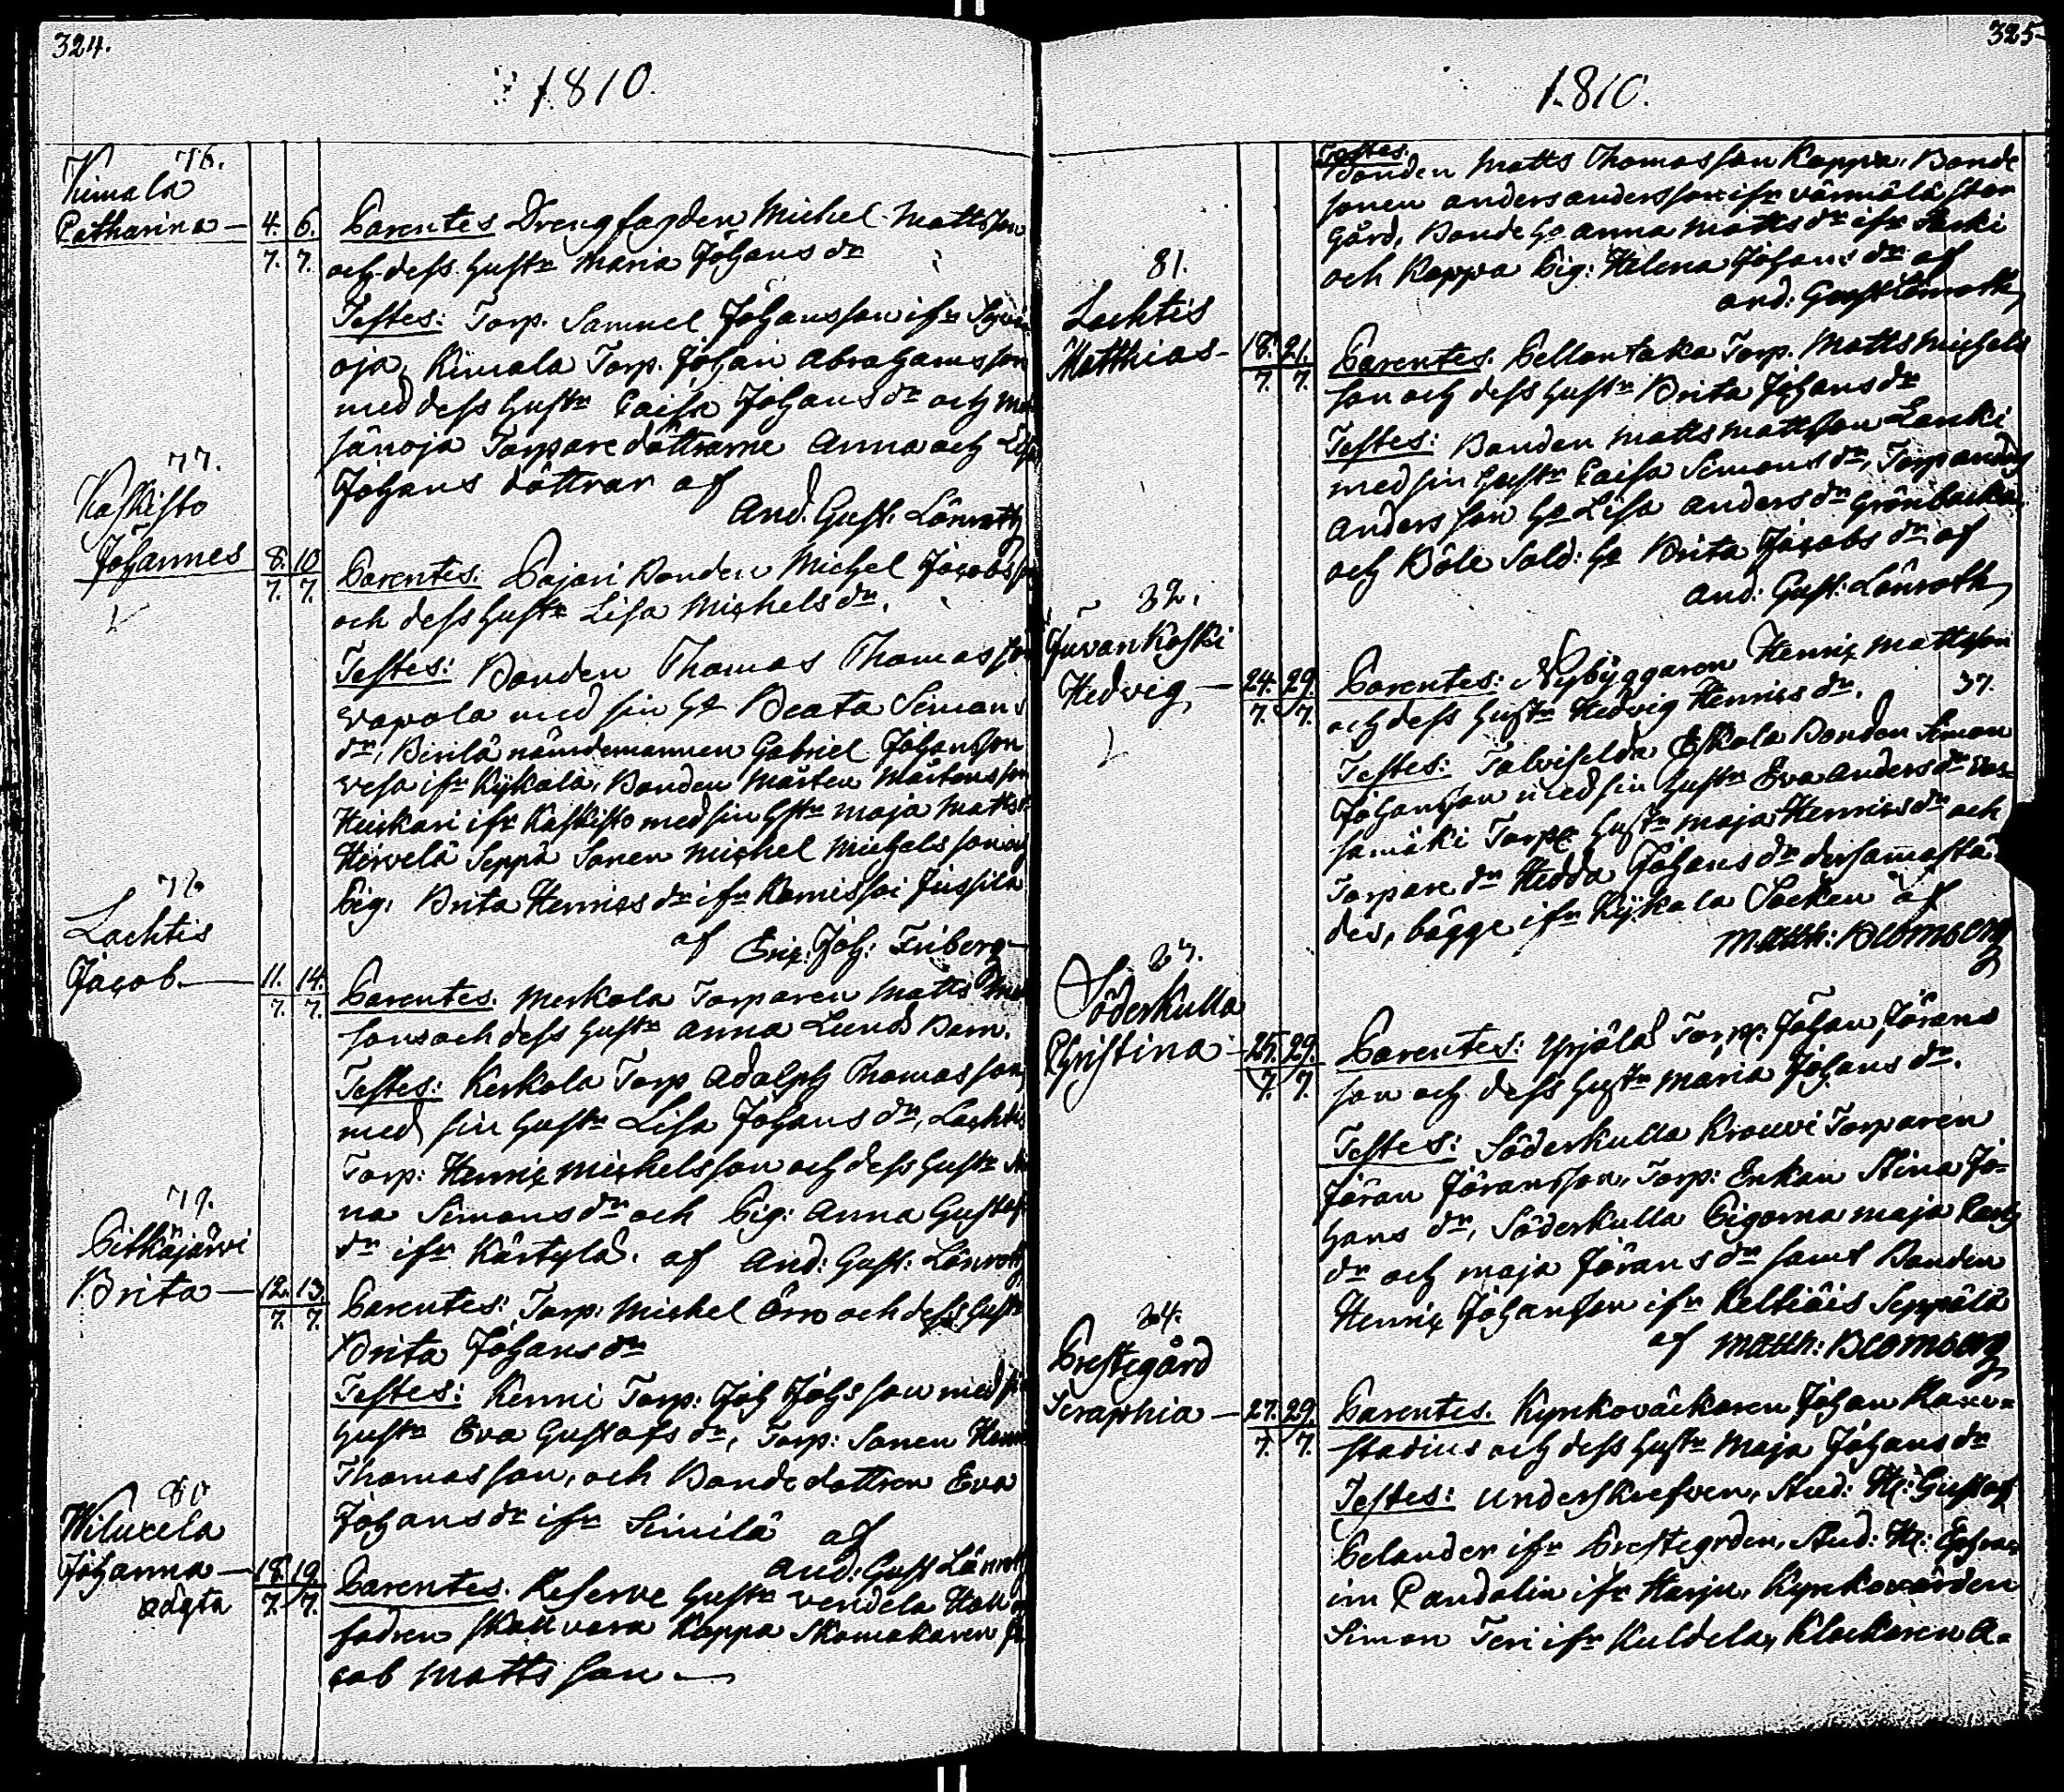 324.
1810.
76.
Kimala
Catharina — 4. 6. Parentes Drengfogden Michel Mattsson
7. 7. och dess Hustr Maria Johans dr
Testes: Torp. Samuel Johansson ifr
oja, Kimala Torp. Johan Abrahamsson
med dess Hustr Caisa Johans dr och
sänoja Torpare döttrarne Anna och
Johans döttrar af
And. Gust. Lönroth
77.
Koskisto
Johannes 8. 10 Parentes. Pajari Bonden Michel Jacobs
7. 7. och dess Hustr Lisa Michels dr.
Testes: Bonden Thomas Thomasson
Wapola med sin H Beata Simons
dr, Birilä nämdemannen Gabriel Johansson
Vesa ifr Kÿkala, Bonden Mårten Mårtensson
Huikari ifr Koskisto med sin Hstr Maja Matts
Hirvelä Seppä Sonen Michel Michelsson och
Pig. Brita Henrics dr ifr Jussila
af Eric Joh: Friberg
78
Lachtis
Jacob — 11. 14. Parentes. Merkola Torparen Matts
7. 7. son och dess Hustr Anna Lunds Barn.
Testes: Kerkola Torp Adolph Thomasson
med sin Hustr Lisa Johans dr, Lachtis
Torp: Henric Michelsson och dess Hustr
na Simons dr och Pig: Anna Gustaf
dr ifr Kärtylä. af And: Gust: Lönroth
79.
Pitkäjärvi
Brita — 12. 13. Parentes: Torp: Michel Örn och dess Hustr
7. 7. Brita Johans dr
Testes: Kenni Torp: Joh Johsson med
Hustr Eva Gustafs dr, Torp: Sonen
Thomasson, och Bonde dottren Eva
Johans dr ifr Similä af
And: Gust Lönroth
80
Wiluxela
Johanna — 18. 19. Parentes. Reserve Hustr Vendela
oägta 7. 7. fadren skall vara Koppa Skomakaren Ja
cob Matts son —
325
1810.
Testes.
Bonden Matts Thomasson Koppa, Bonde
sonen Anders Andersson ifr Värmälä stor
gård, Bonde H Anna Matts dr ifr
och Koppa Pig: Helena Johans dr af
And: Gust Lönroth
81.
Lachtis
Matthias — 18. 21. Parentes. Pellontaka Torp. Matts Michels
7. 7. son och dess Hustr Brita Johans dr
Testes: Bonden Matts Mattsson Lanki
med sin Hustr Caisa Simons dr, Torp Anders
Andersson H Lisa Anders dr Grönbacka
och Böle Sold: H Brita Jacobs dr af
And: Gust: Lönroth
82.
Juvankoski
Hedvig — 24. 29. Parentes: Nybyggaren Henric Mattsson
7. 7. och dess Hustr Hedvig Henrics dr. 37.
Testes: Talviselda Eskola Bonden Simon
Johansson med sin Hustr Eva Anders dr
samäki Torp Hustr Maja Henrics dr och
Torpare dr Hedda Johans dr dersammastä
des, bägge ifr Kÿkala Socken af
Matth: Blomberg
83.
Söderkulla
Christina — 25. 29. Parentes: Yrjölä Torp: Johan Jörans
7. 7. son och dess Hustr Maria Johans dr.
Testes: Söderkulla Krouvi Torparen
Jöran Jöransson, Torp: Enkan Stina Jo-
hans dr, Söderkulla Pigorna Maja
dr och Maja Jörans dr samt Bonden
Henric Johansson ifr Keltiäis Seppälä
af Matth: Blomberg
84.
Prestegård
Seraphia — 27. 29. Parentes. Kyrkoväckaren Johan
7. 7. stadius och dess Hustr Maja Johans dr
Testes: Underskrefven, Stud: H: Gustaf
Pelander ifr Prestegrden, Stud: H: Ephra-
im Pandolin ifr Harju, Kyrkovärden
Simon Teri ifr Kuldela, Klockaren A-